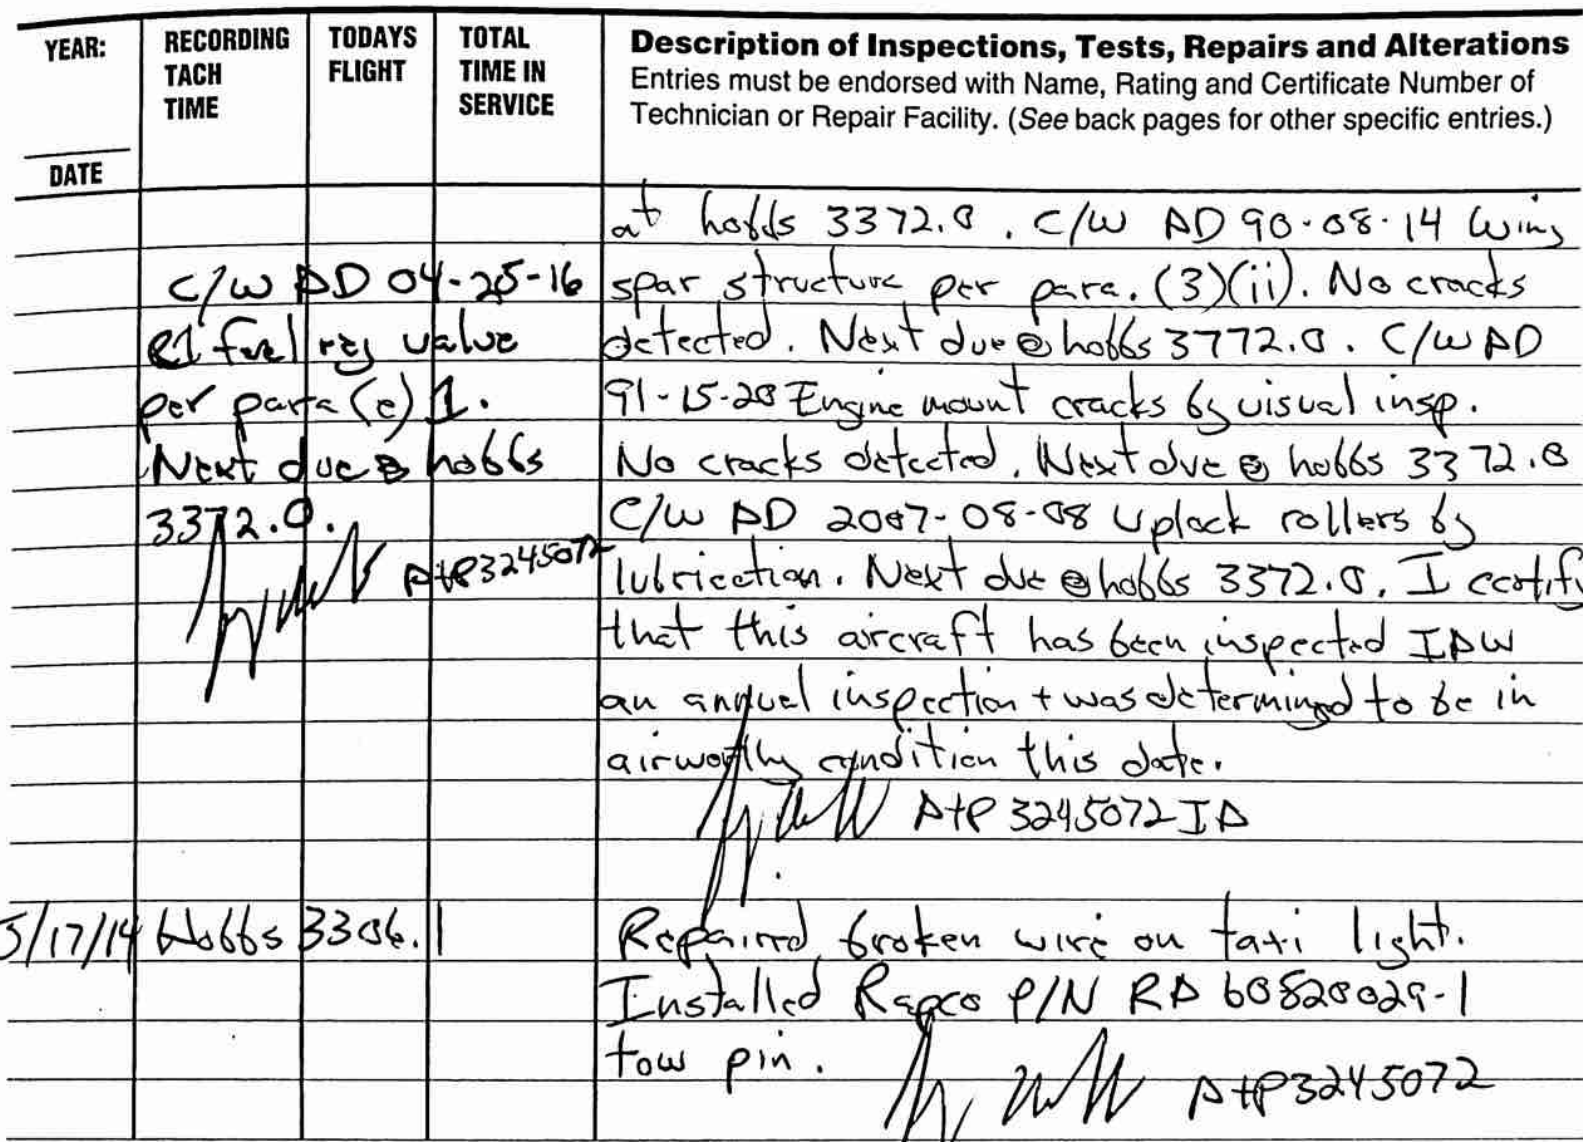 YEAR:
DATE
RECORDING
TACH
TIME
TODAYS
FLIGHT
TOTAL
TIME IN
SERVICE
Description of Inspections, Tests, Repairs and Alterations
Entries must be endorsed with Name, Rating and Certificate Number of
Technician or Repair Facility. (See back pages for other specific entries.)
at hobbs 3372.0. C/W AD 90-08-14 Wing
spar structure per para. (3)(ii). No cracks
detected. Next due @ hobbs 3772.0. C/W AD
91-15-20 Engine mount cracks by visual insp.
No cracks detected. Next due @ hobbs 3372.0
C/W AD 2007-08-08 Uplock rollers by
lubrication. Next due @ hobbs 3372.0. I certify
that this aircraft has been inspected IAW
an annual inspection + was determined to be in
airworthy condition this date.
A+P 3245072 IA
C/W AD 04-25-16
fuel reg valve
per para (e) 1.
Next due @ hobbs
3372.0.
A+P3245072
5/17/14 Hobbs 3306.1
Repaired broken wire on taxi light.
Installed Rapco P/N RA 60820029-1
tow pin.
A+P3245072